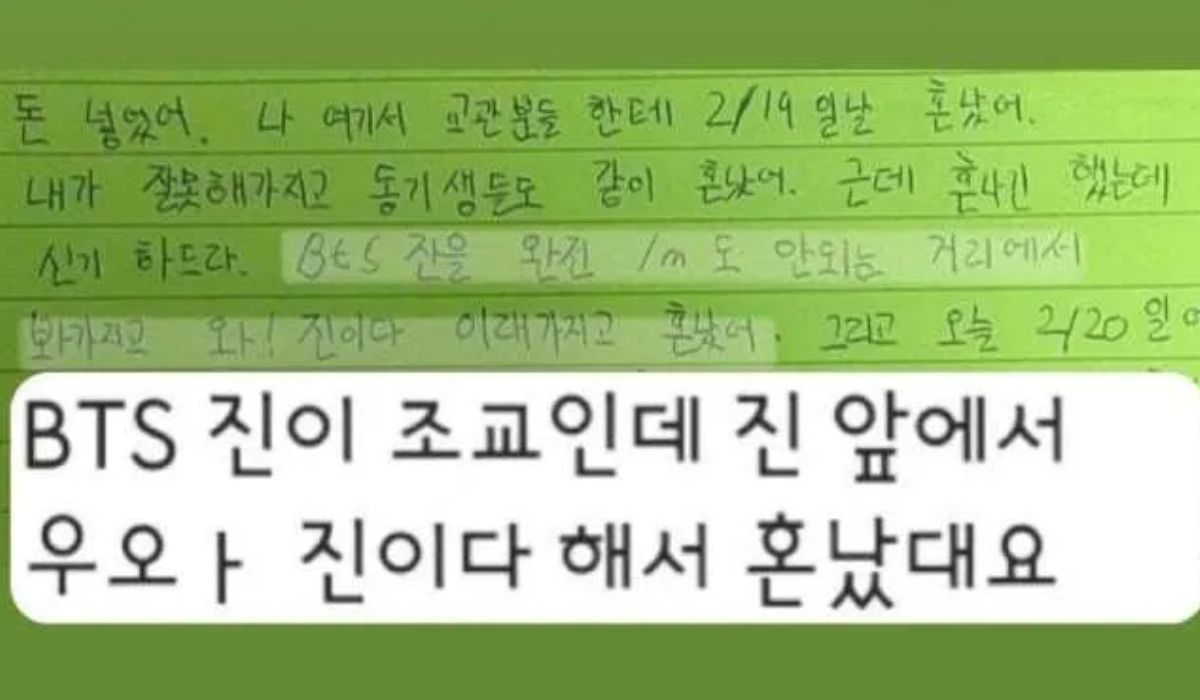 돈 넣었어. 나 여기서 교관분들 한테 2/19 일날 혼났어.
내가 잘못해가지고 동기생들도 같이 혼났어. 근데 혼나긴 했는데
신기 하드라. BtS 진을 완전 1m 도 안되는 거리에서
봐가지고 와! 진이다 이래가지고 혼났어. 그리고 오늘 2/20 일
BTS 진이 조교인데 진 앞에서
우오ㅏ 진이다 해서 혼났대요